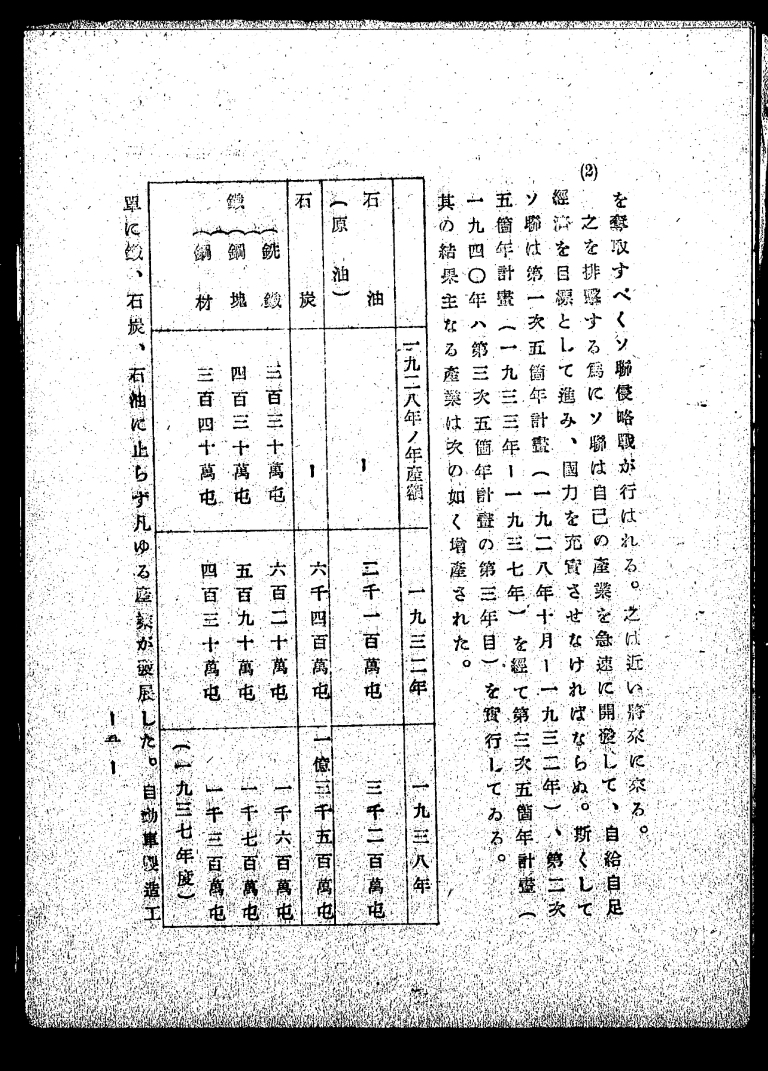 を奪取すべくソ聯侵略戰が行はれる。之は近い將來に來る。
(2) 之を排擊する爲にソ聯は自己の產業を急速に開發して、自給自足
經濟を目標として進み、國力を充實させなければならぬ。斯くして
ソ聯は第一次五箇年計畫(一九二八年十月ー一九三二年)、第二次
五箇年計畫(一九三三年ー一九三七年)を經て第三次五箇年計畫(
一九四〇年ハ第三次五箇年計畫の第三年目)を實行してゐる。
其の結果主なる產業は次の如く增產された。
一九二八年ノ年產額 一九三二年 一九三八年
石油(原油) ー 二千一百萬屯 三千二百萬屯
石炭 ー 六千四百萬屯 一億三千五百萬屯
鐵
銑鐵 三百三十萬屯 六百二十萬屯 一千六百萬屯
鋼塊 四百三十萬屯 五百九十萬屯 一千七百萬屯
鋼材 三百四十萬屯 四百三十萬屯 一千三百萬屯
(一九三七年度)
單に鐵、石炭、石油に止らず凡ゆる產業が發展した。自動車製造工
ー五ー